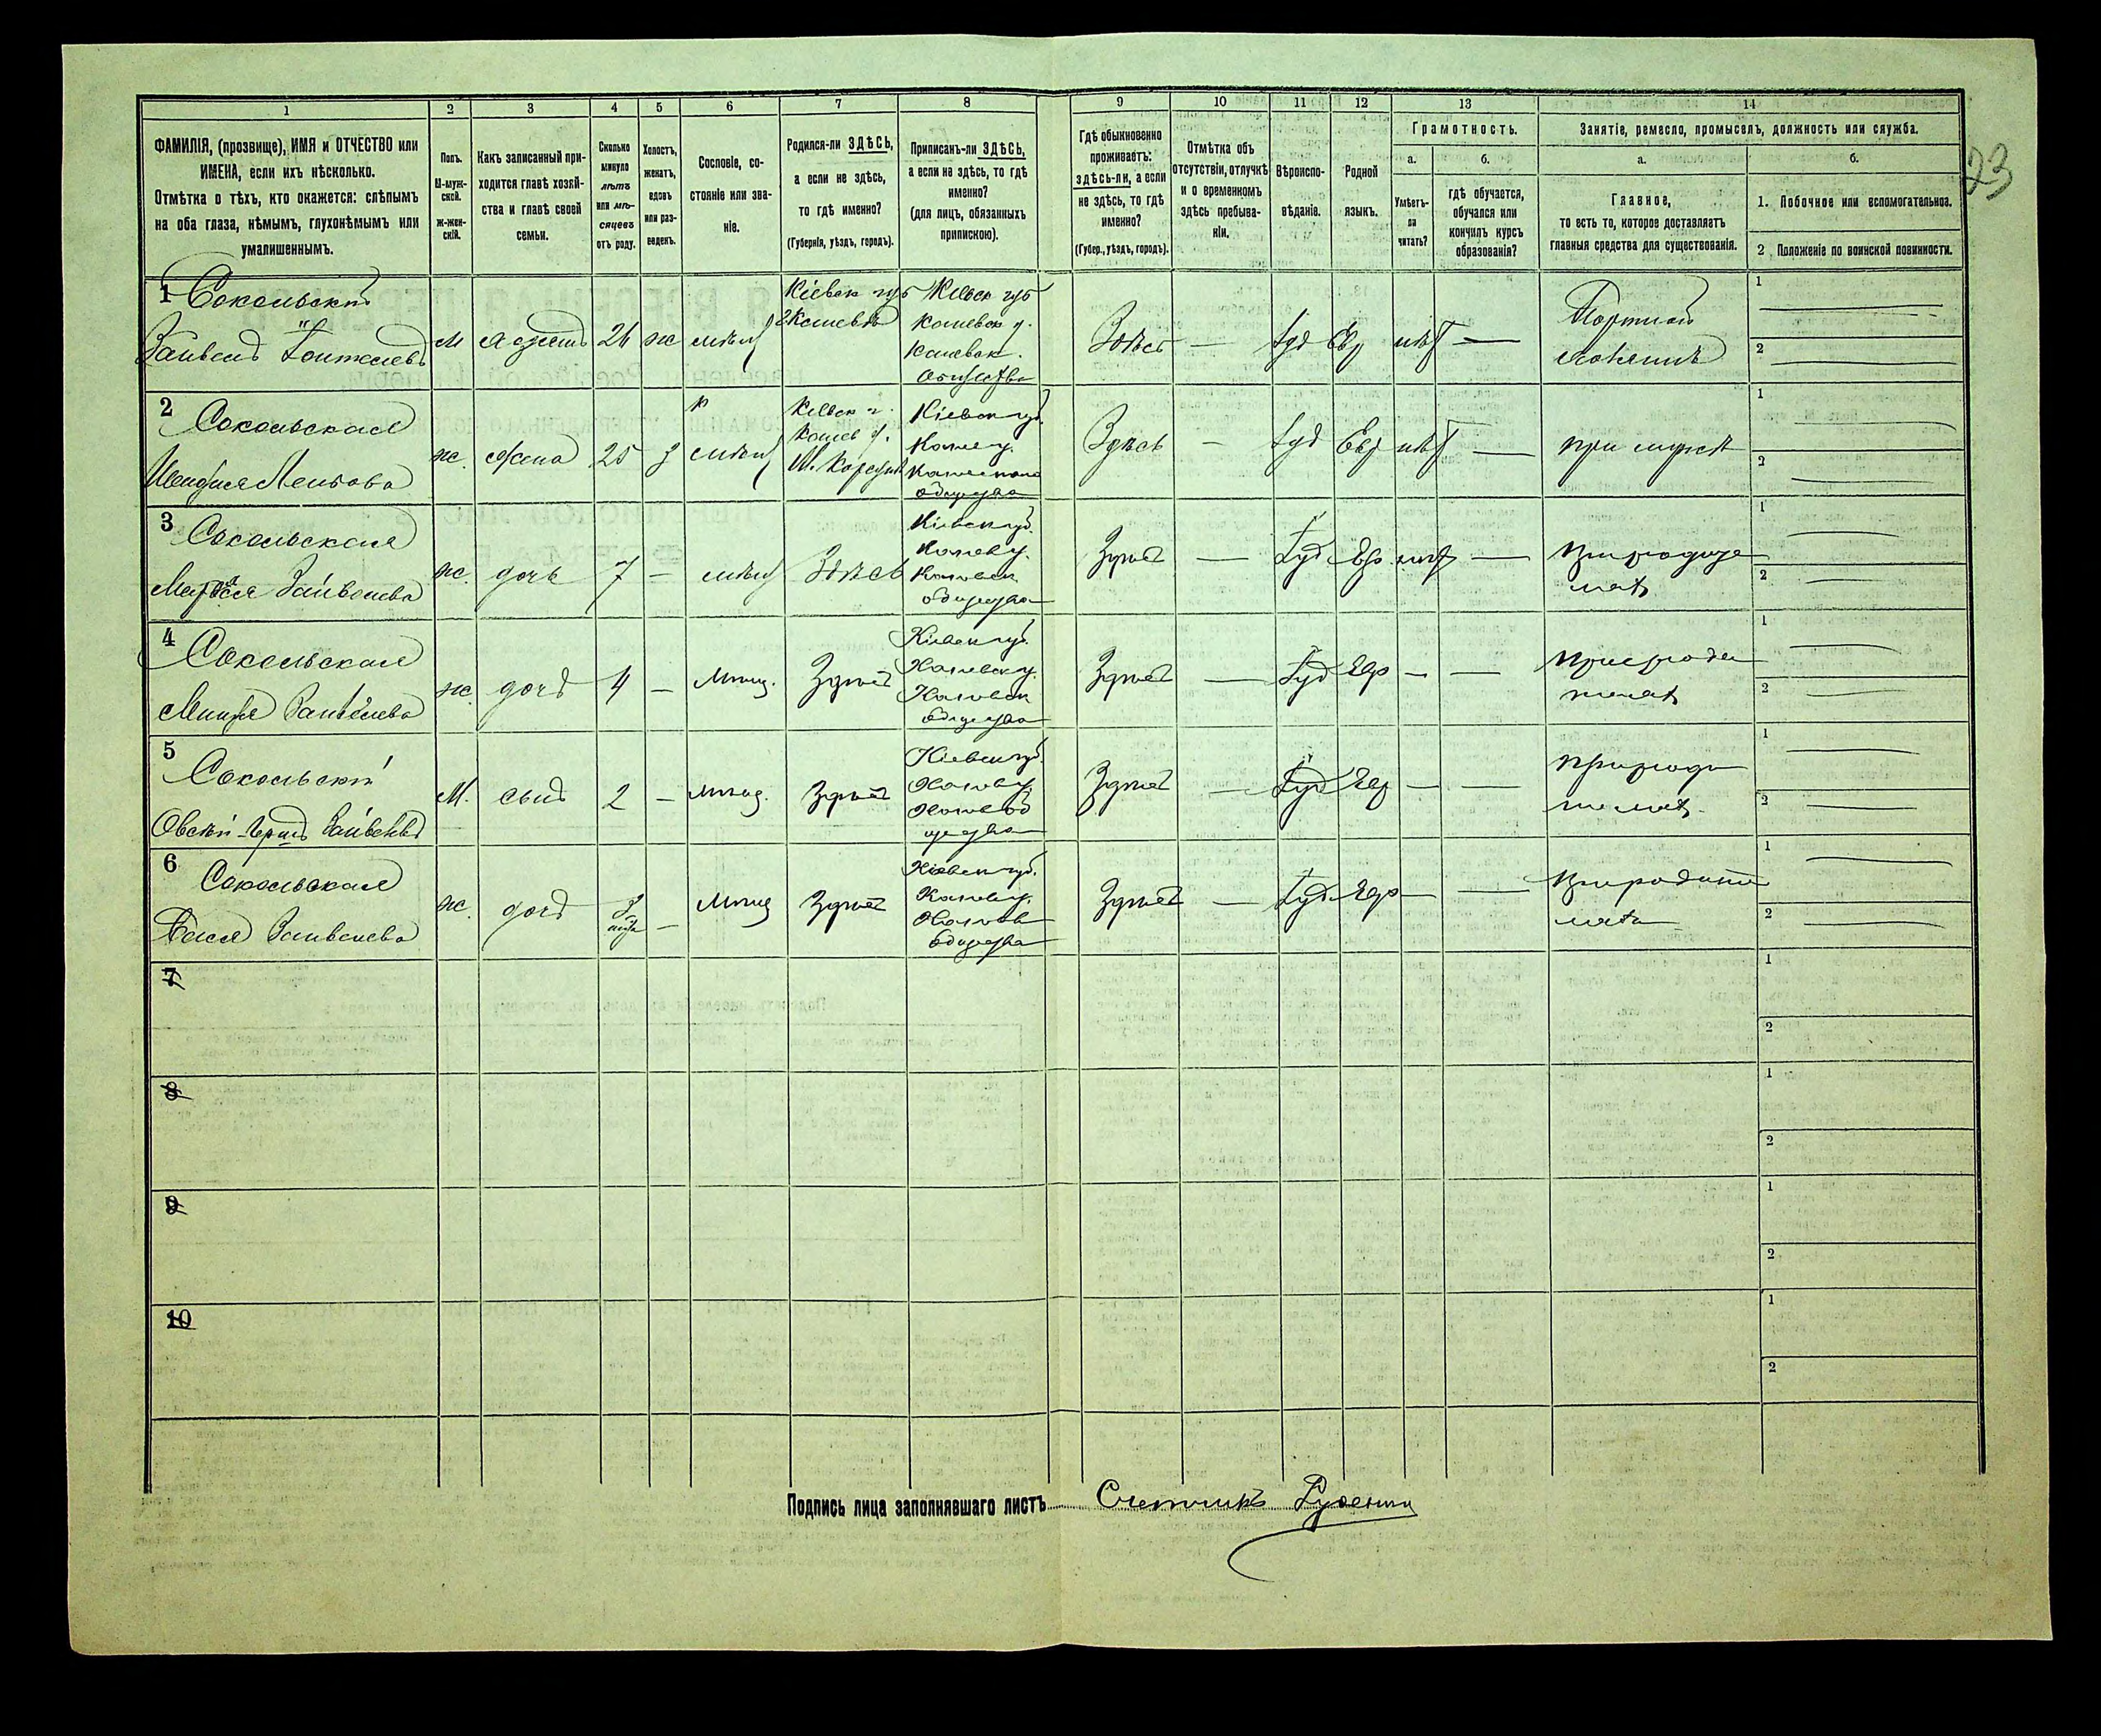 1 2 3 4 5 6 7 8 9 10 11 12 13 14
ФАМИЛІЯ, (прозвище), ИМЯ и ОТЧЕСТВО или
ИМЕНА, если ихъ нѣсколько.
Отмѣтка о тѣхъ, кто окажется: слѣпымъ
на оба глаза, нѣмымъ, глухонѣмымъ или
умалишеннымъ.
Полъ.
М-муж-
ской.
Ж-жен-
скій.
Какъ записанный при-
ходится главѣ хозяй-
ства и главѣ своей
семьи.
Сколько
минуло
лѣтъ
или мѣ-
сяцевъ
отъ роду.
Холостъ,
женатъ,
вдовъ
или раз-
веденъ.
Сословіе, со-
стояніе или зва-
ніе.
Родился-ли ЗДѢСЬ,
а если не здѣсь,
то гдѣ именно?
(Губернія, уѣздъ, городъ).
Приписанъ-ли ЗДѢСЬ,
а если не здѣсь, то гдѣ
именно?
(для лицъ, обязанныхъ
припискою).
Гдѣ обыкновенно
проживаетъ:
здѣсь-ли, а если
не здѣсь, то гдѣ
именно?
(Губер., уѣздъ, городъ).
Отмѣтка объ
отсутствіи, отлучкѣ
и о временномъ
здѣсь пребыва-
ніи.
Вѣроиспо-
вѣданіе.
Родной
языкъ.
Грамотность.
а.
Умѣетъ-
ли
читать?
б.
гдѣ обучается,
обучался или
кончилъ курсъ
образованія?
Занятіе, ремесло, промыселъ, должность или служба.
а.
Главное,
то есть то, которое доставляетъ
главныя средства для существованія.
б.
1. Побочное или вспомогательное.
2 Положеніе по воинской повинности.
23
1 Сокольскій
М 26 ж
Кіевск губ
г Каневъ
Кіевск губ
Каневск у.
Каневск.
Общества
Здѣсь — Іуд Евр нѣт —
Портной
1
2
2 Сокольская
ж. жена 25 з
Кіевск г.
Канев у.
М. Корсунь
Кіевск губ.
Канев у.
общества
Здѣсь — Іуд Евр нѣт —
при мужѣ
1
2
3 Сокольская
Зайвелева
ж. дочь 7 — Здѣсь
Кіевск губ.
Канев у.
Каневск
общества
Здѣсь — Іуд Евр нѣт —
1
2
4 Сокольская
Зайвелева
ж. дочь 4 — Мѣщ. Здѣсь
Кіевск губ.
Каневск у.
Каневск
общества
Здѣсь — Іуд Евр — —
1
2
5 Сокольскій
М. сынъ 2 — Мѣщ. Здѣсь
Кіевск губ.
Канев у.
Здѣсь — Іуд Евр — —
1
2
6 Сокольская
Зайвелева
ж. дочь — Мѣщ Здѣсь
Кіевск губ.
Канев у.
Канев
общества
Здѣсь — Іуд Евр — —
1
2
7
1
2
8
1
2
9
1
2
10
1
2
Подпись лица заполнявшаго листъ Счетчикъ